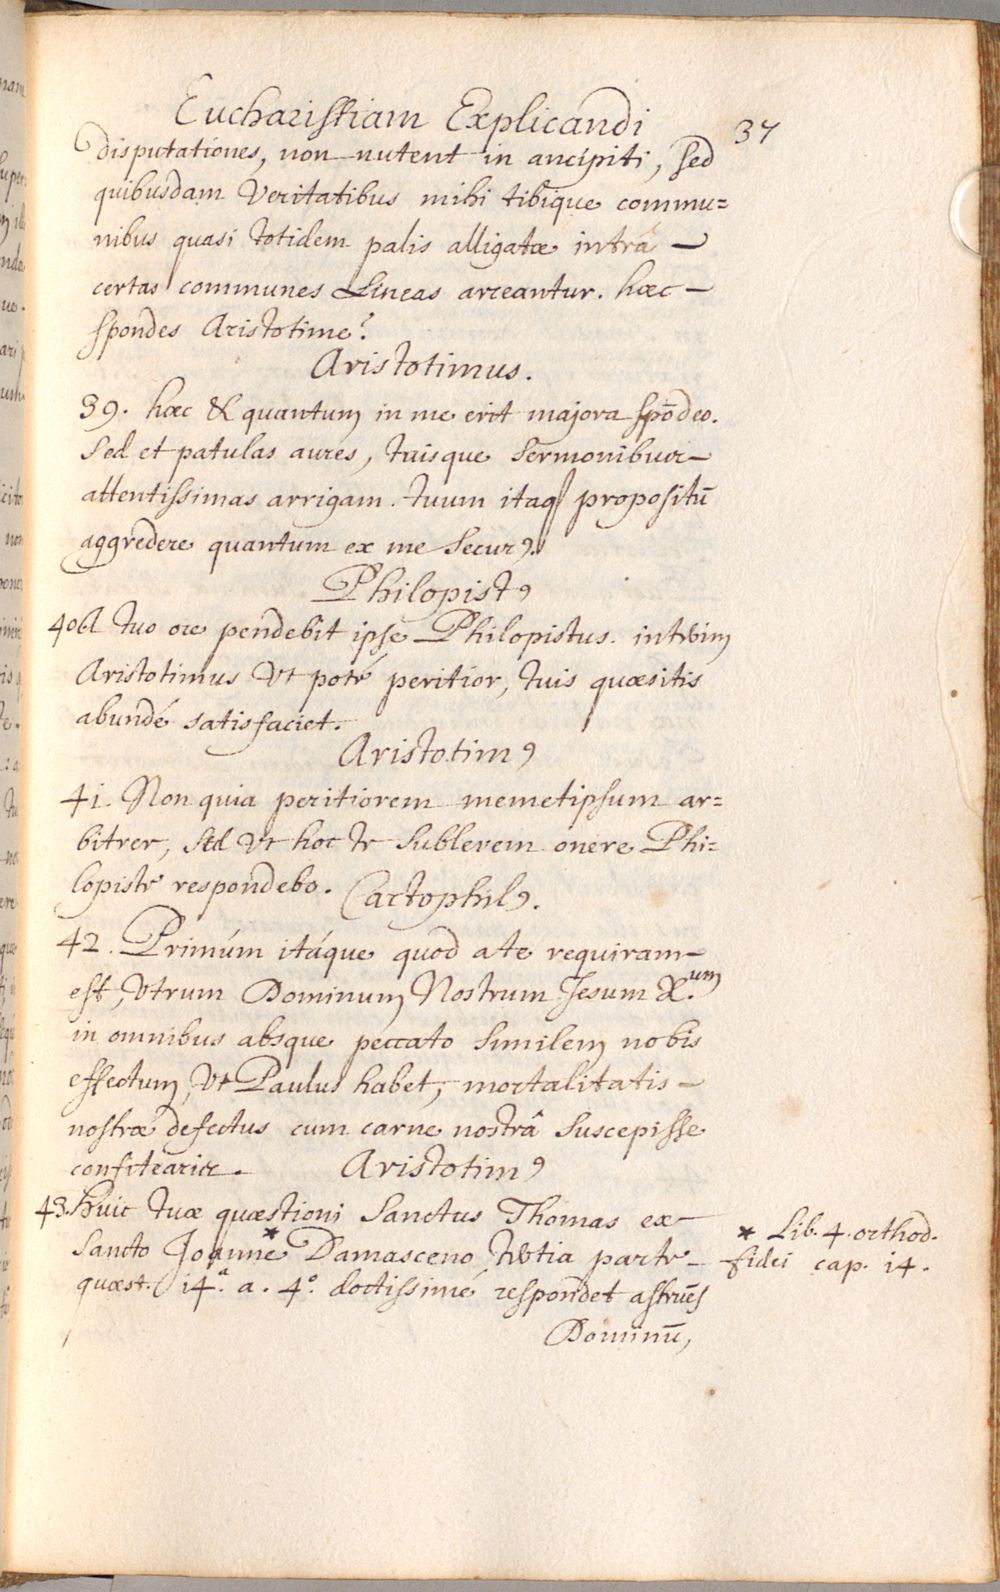 Eucharistiam Explicandi
37
disputationes, non nutent in ancipiti, sed
quibusdam Veritatibus mihi tibique commu=
nibus quasi totidem palis alligatæ intrá —
certas communes Lineas arceantur. hæc —
spondes Aristotime?
Aristotimus.
39. hæc & quantum in me erit majora spōdeo.
Sed et patulas aures, tuisque Sermonibus —
attentissimas arrigam. tuum itaq propositū
aggredere quantum ex me Securꝰ.
Philopistꝰ
40 A tuo ore pendebit ipse Philopistus. interim
Aristotimus Ut poté peritior, tuis quæsitis
abundé satisfaciet.
Aristotimꝰ
41. Non quia peritiorem memetipsum ar=
bitrer, Sed Ut hoc te Sublevem onere Phi=
lopiste respondebo.
Cactophilꝰ.
42. Primúm itáque quod a te requiram —
est, Utrum Dominum Nostrum Jesum X.um
in omnibus absque peccato Similem nobis
effectum, Ut Paulus habet, mortalitatis —
nostræ defectus cum carne nostrâ Suscepisse
confitearis.
Aristotimꝰ
43. Huic tuæ quæstioni Sanctus Thomas ex —
Sancto Joanne* Damasceno, tertia parte —
quæst. 14.a a. 4.o doctissimé respondet astruēs
Dominū,
* Lib. 4. orthod.
fidei cap. 14.